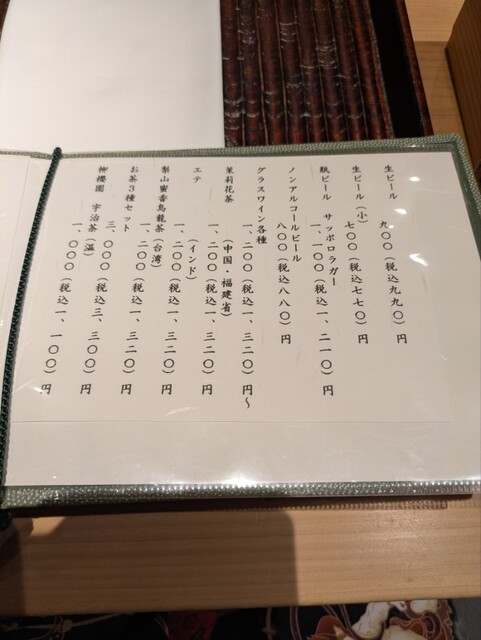 生ビール 九〇〇（税込九九〇）円
生ビール（小） 七〇〇（税込七七〇）円
瓶ビール サッポロラガー 一、一〇〇（税込一、二一〇）円
ノンアルコールビール 八〇〇（税込八八〇）円
グラスワイン各種 一、二〇〇（税込一、三二〇）円～
茉莉花茶 （中国・福建省） 一、二〇〇（税込一、三二〇）円
エテ （インド） 一、二〇〇（税込一、三二〇）円
梨山蜜香烏龍茶（台湾） 一、二〇〇（税込一、三二〇）円
お茶３種セット 三、〇〇〇（税込三、三〇〇）円
柳櫻園 宇治茶（温） 一、〇〇〇（税込一、一〇〇）円